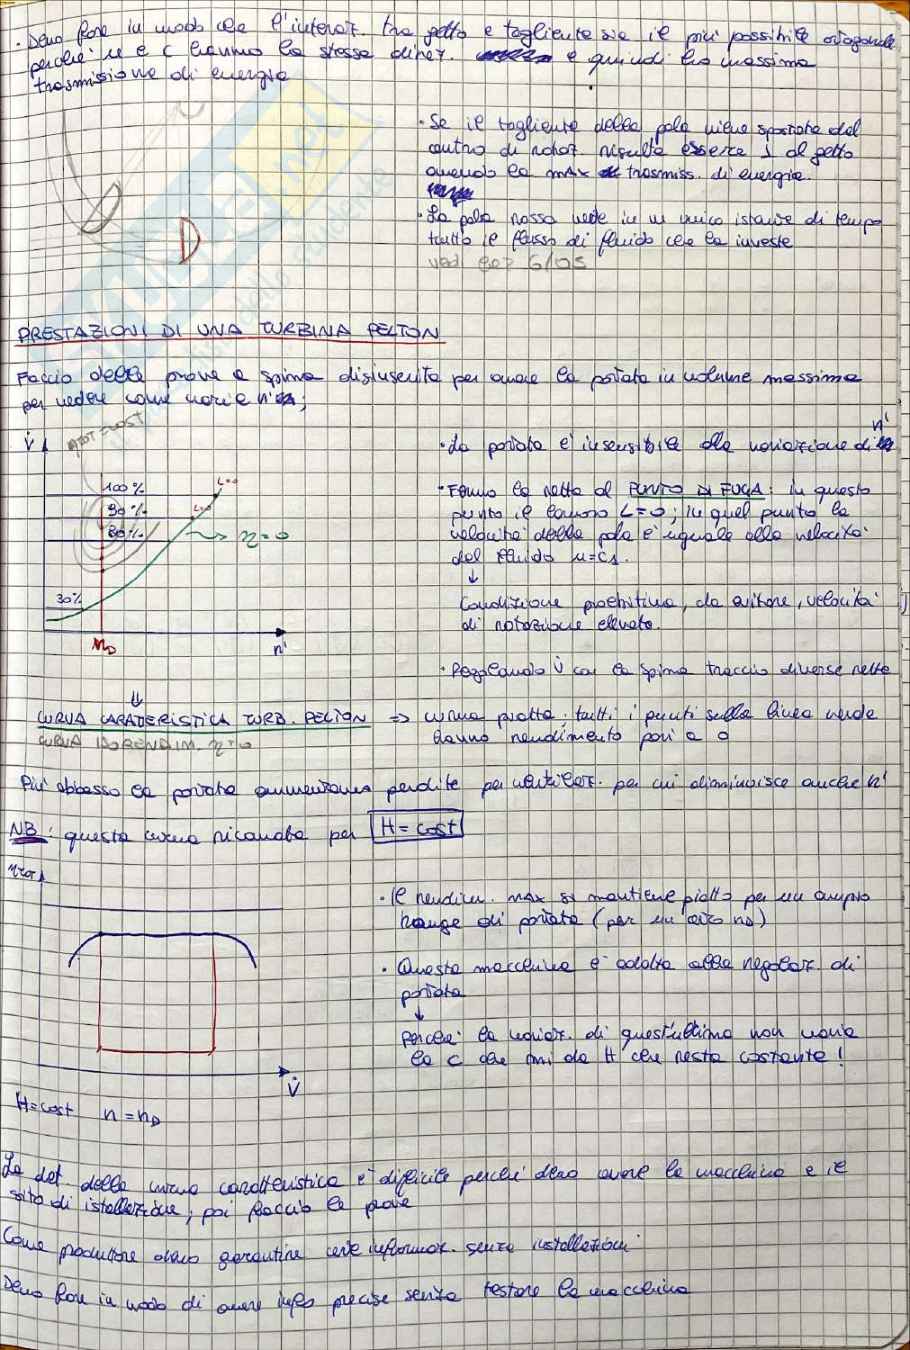 · Devo fare in modo che l'interaz. tra getto e tagliente sia il più possibile ortogonale
perché u e c hanno la stessa direz. e quindi ho massima
trasmissione di energia
· Se il tagliente della pala viene spostato dal
centro di rotaz. risulta essere ⊥ al getto
avendo la max trasmiss. di energia
· La pala rossa vede in un unico istante di tempo
tutto il flusso di fluido che la investe
vedi lez 6/05
PRESTAZIONI DI UNA TURBINA PELTON
Faccio delle prove a spina disinserita per avere la portata in volume massima
per vedere come varia n';
V̇
ηTOT=COST
100%
90%
80%
30%
L=0
L=0
η=0
nD
n'
· La portata è insensibile alla variazione di n'
· Fermo la retta al PUNTO DI FUGA: in questo
punto il lavoro L=0; in quel punto la
velocità della pala è uguale alla velocità
del fluido u=c1.
↓
Condizione proibitiva, da evitare, velocità
di rotazione elevata.
· Regolando V̇ con la spina traccio diverse rette
⇓
CURVA CARATTERISTICA TURB. PELTON => curva piatta; tutti i punti sulla linea verde
hanno rendimento pari a 0
CURVA ISORENDIM. η=0
Più abbasso la portata aumentano perdite per ventilaz. per cui diminuisce anche n'
NB: questa curva ricavata per H = cost
ηTOT
V̇
H=cost n=nD
· Il rendim. max si mantiene piatto per un ampio
range di portata (per un dato nD)
· Questa macchina è adatta alla regolaz. di
portata
↓
perché la variaz. di quest'ultima non varia
la c che mi da H che resta costante!
La det. della curva caratteristica è difficile perché devo avere la macchina e il
sito di istallazione; poi faccio le prove
Come produttore devo garantire certe informaz. senza installazioni
Devo fare in modo di avere info precise senza testare la macchina